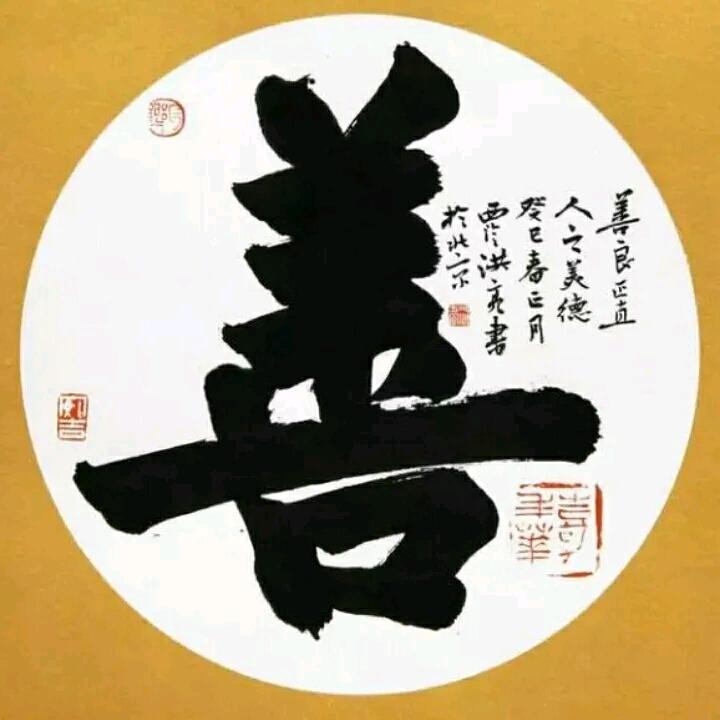 善
善良正直
人之美德
癸巳春正月
贾洪亮书
於北京